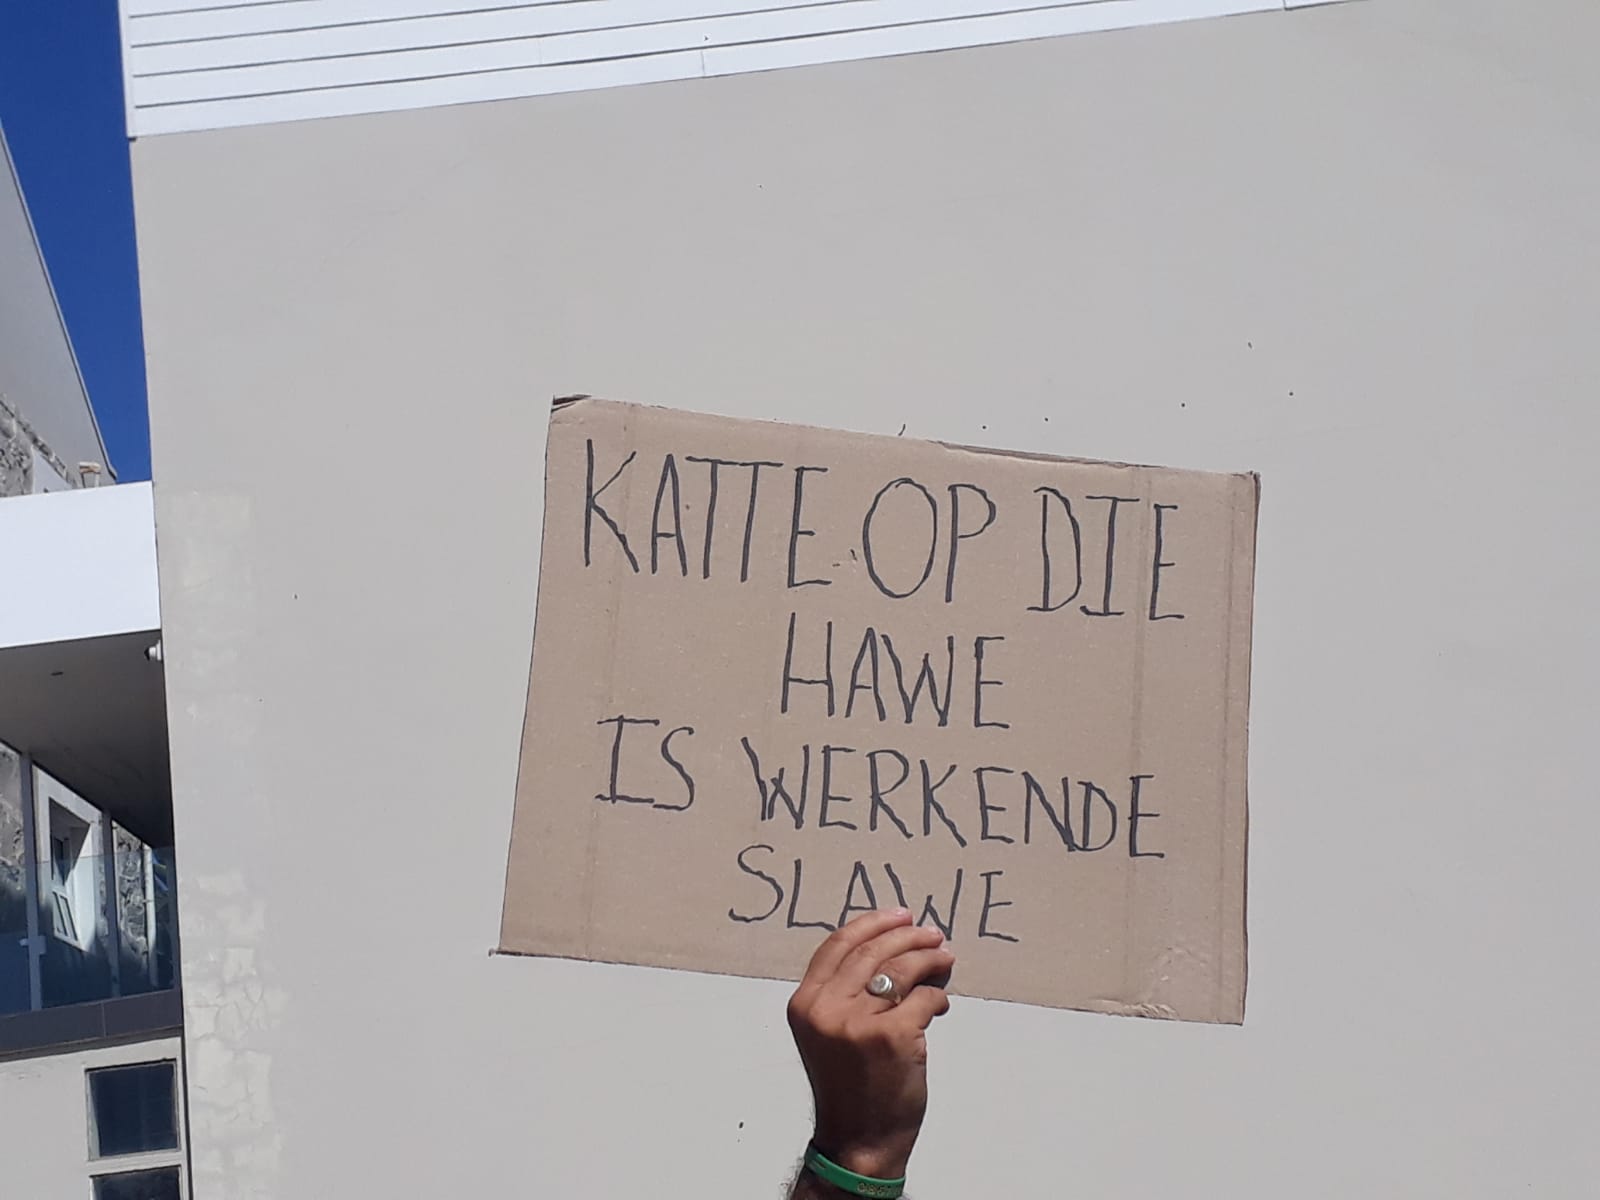 KATTE OP DIE
HAWE
IS WERKENDE
SLAWE